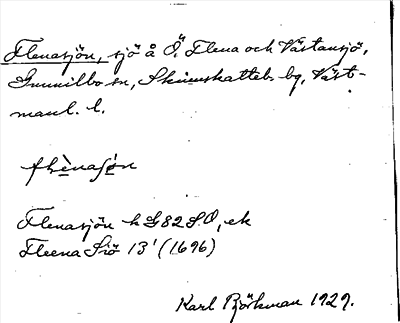 Flenasjön, sjö å Ö. Flena och Västansjö,
Gunnilbo sn, Skinnskattebg bg, Väst-
manl. l.
flènasjön
Flenasjön h G82 S.O, ek
Fleena Siö 13' (1696)
Karl Björkman 1929.